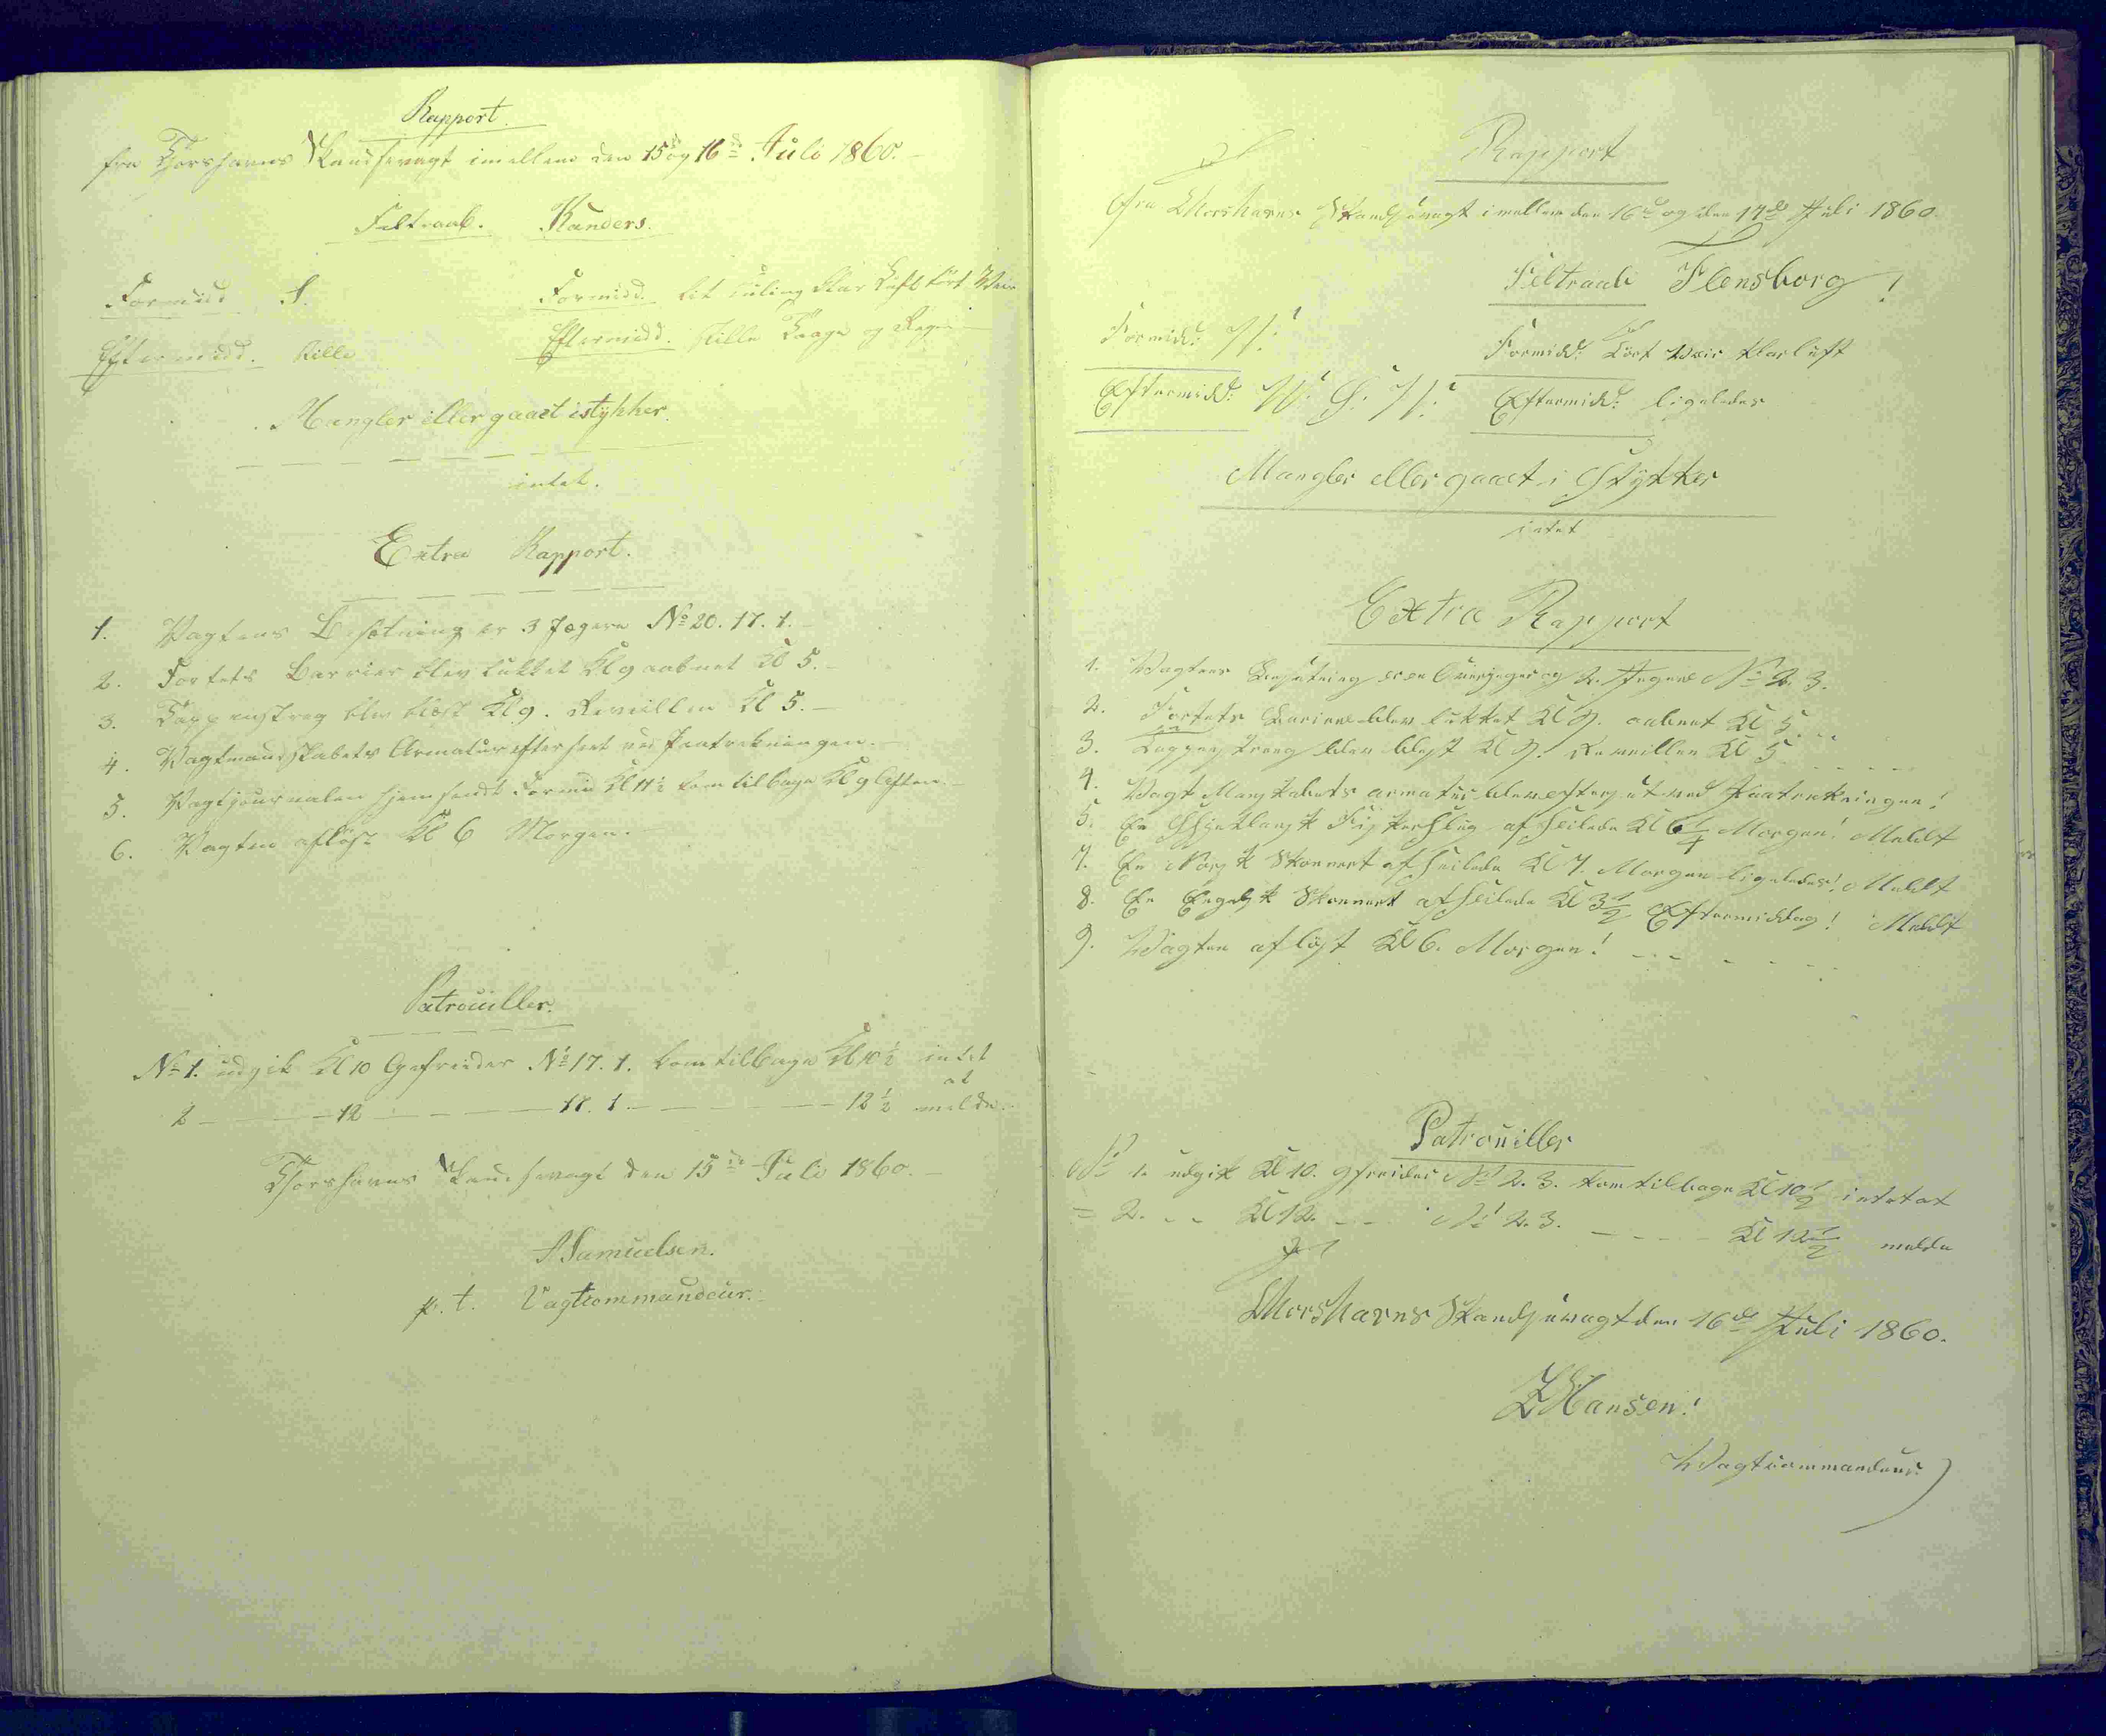 Rapport.
fra Thorshavns Skandsevagt imellem den 15de og 16de Juli 1860.
Feltraab. Randers.
Formidd S. Formidd. lit Kuling klar Luft tört Veir
Eftermidd. Stille Eftermidd. Stille Taage og Regn
Mangler eller gaaet istykker.
intet.
Extra Rapport.
1. Vagtens Besætning er 3 Jægere No 20. 17. 1.
2. Fortets Barrier blev lukket Kl 9 aabnet Kl 5.
3. Tappenstreg blev blæst Kl 9. Reveillen Kl 5.
4. Vagtmandskabets Armatur efterseet ved Paatrækningen.
5. Vagtjournalen hjemsendt Formid Kl 11½ kom tilbage Kl 9 Aften.
6. Vagten aflöst Kl 6 Morgen.
Patrouiller.
No 1. udgik Kl 10 Gefreider No 17. 1. kom tilbage Kl 10½ intet
at
2 — 12 — 17. 1. — 12½ melde.
Thorshavns Skandsevagt den 15de Juli 1860.
Samuelsen.
p. t. Vagtcommandeur.
Rapport
fra Thorshavns Skandsevagt imellem den 16de og den 17de Juli 1860.
Feltraab Flensborg!
Formidd: N: Formidd: Tört Veir klar luft
Eftermidd: N: S: N: Eftermidd: ligeledes
Mangler eller gaaet i Stykker
intet
Extra Rapport
1. Vagtens Besætning er en Overjæger og 2. Jægere No 2. 3.
2. Fortets Bariere blev lukket Kl 9. aabnet Kl 5.
3. Tappenstreng blev blæst Kl 9. Reveillen Kl 5.
4. Vagt Manskabets armatur blev efterset ved Paatrækningen!
5. En Shjetlansk Fiskerslup afseilede Kl 6¼ Morgen! Meldt
7. En Norsk Skonnert afseilede Kl 7. Morgen ligeledes! Meldt
8. En Engelsk Skonnert afseilede Kl 3½ Eftermiddag! Meldt
9. Vagten aflöst Kl 6. Morgen!
Patrouiller
No 1. udgik Kl 10. gfreider No 2. 3. kom tilbage Kl 10½ intet at
= 2. - - Kl 12. - - No 2. 3. - - - - Kl 12½ melde
Thorshavns Skandsevagt den 16de Juli 1860.
Hansen!
Vagtcommandeur